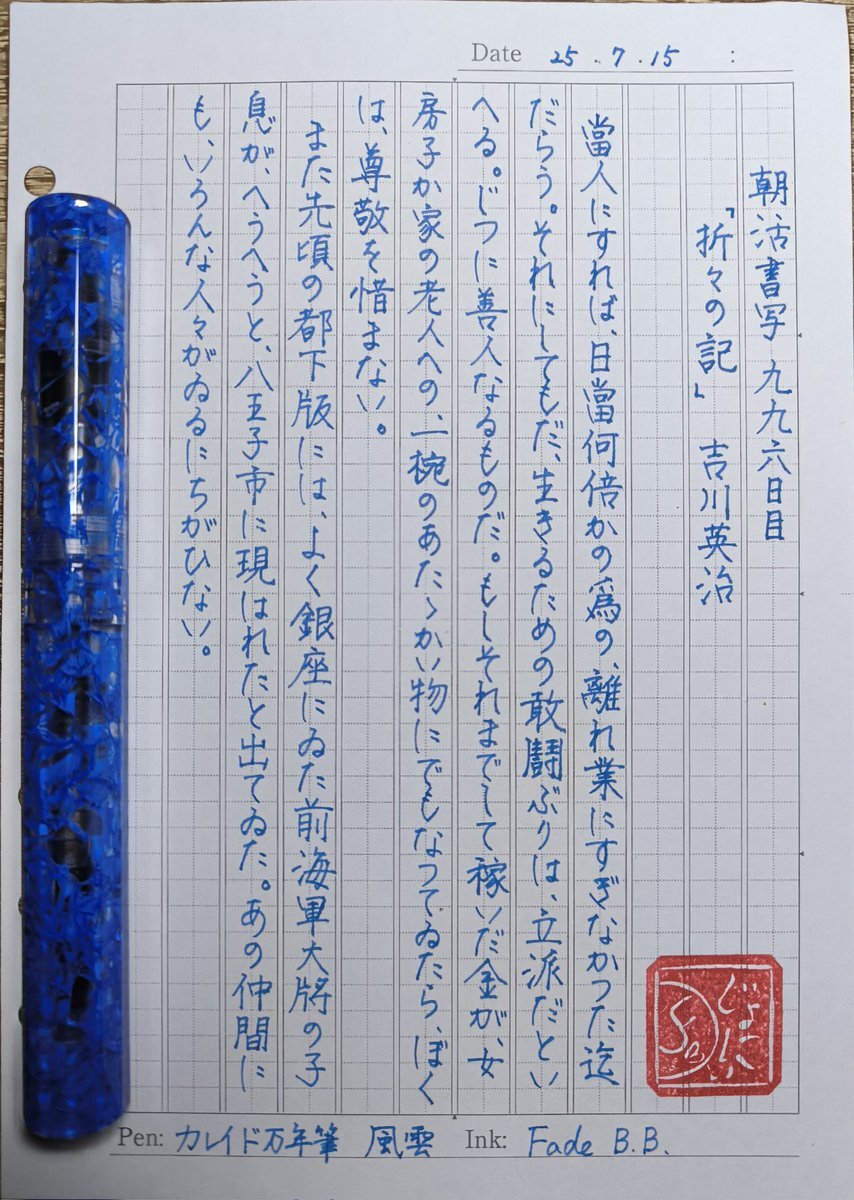 Date 25.7.15 :
朝活書写 九九六日目
「折々の記」 吉川英治
當人にすれば、日當何倍かの爲の、離れ業にすぎなかつた迄
だらう。それにしてもだ、生きるための敢鬪ぶりは、立派だとい
へる。じつに善人なるものだ。もしそれまでして稼いだ金が、女
房子か家の老人への、一椀のあたゝかい物にでもなつてゐたら、ぼく
は、尊敬を惜まない。
また先頃の都下版には、よく銀座にゐた前海軍大將の子
息が、へうへうと、八王子市に現はれたと出てゐた。あの仲間に
も、いろんな人々がゐるにちがひない。
Pen: カレイド万年筆 風雲 Ink: Fade B.B.